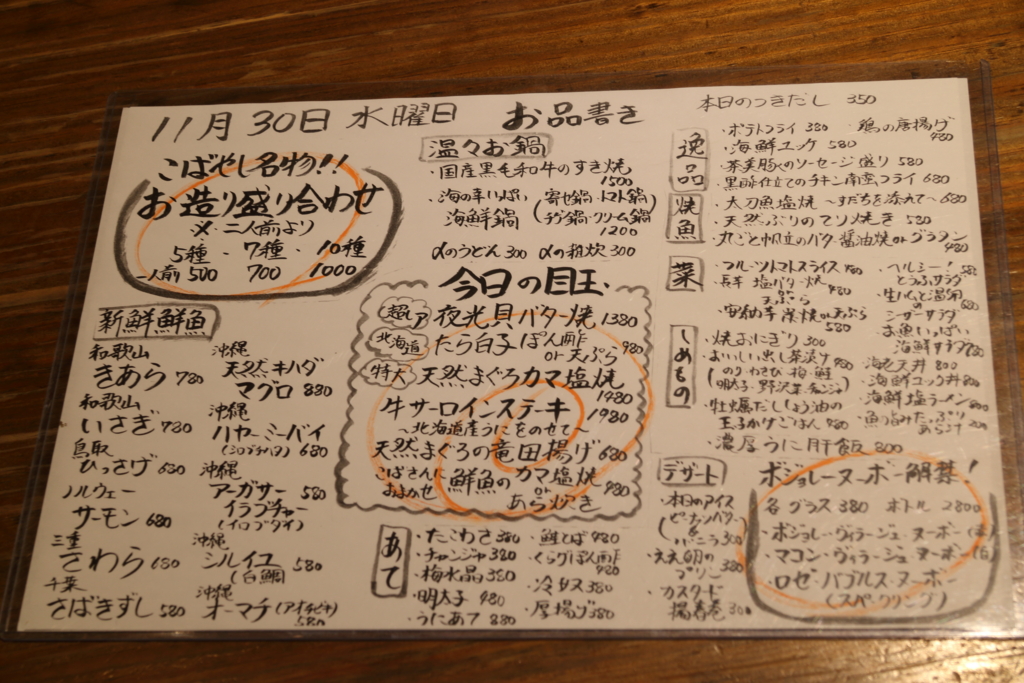 11月30日 水曜日 お品書き
本日のつきだし 350
こばやし名物!!
お造り盛り合わせ
〆・二人前より
5種・7種・10種
一人前 500 700 1000
新鮮鮮魚
和歌山
きあら 780
和歌山
いさぎ 780
鳥取
ひっさげ 680
ノルウェー
サーモン 680
三重
さわら 680
千葉
さばきずし 580
沖縄
天然キハダ
マグロ 880
沖縄
ハヤーミーバイ
(シロブチハタ) 680
沖縄
アーガサー 580
イラブチャー
(イロブダイ)
沖縄
シルイユ 580
(白鯛)
沖縄
オーマチ(アオチビキ)
580
温々お鍋
・国産黒毛和牛のすき焼
1500
・海の幸いっぱい
海鮮鍋
(寄せ鍋・トマト鍋
チゲ鍋・クリーム鍋)
1200
〆のうどん 300 〆の雑炊 300
今日の目玉
超レア 夜光貝バター焼 1380
北海道 たら白子ぽん酢
or天ぷら 980
特大 天然まぐろカマ塩焼
1480
牛サーロインステーキ 1980
〜北海道産うにをのせて〜
天然まぐろの竜田揚げ 680
こばさんに
おまかせ 鮮魚のカマ塩焼
or
あら炊き 980
あて
・たこわさ 380
・チャンジャ 380
・梅水晶 380
・明太子 480
・うにあて 880
・鮭とば 480
・くらげぽん酢
480
・冷奴 380
・厚揚げ 380
逸品
・ポテトフライ 380
・鶏の唐揚げ
480
・海鮮ユッケ 580
・茶美豚のソーセージ盛り 580
・黒酢仕立てのチキン南蛮フライ 680
焼魚
・太刀魚塩焼 〜すだちを添えて〜 680
・天然ぶりのテリ焼き 580
・丸ごと帆立のバター醤油焼orグラタン
480
菜
・フルーツトマトスライス 480
・長芋 塩バター焼
天ぷら 480
・安納芋 炭焼or天ぷら
580
・ヘルシー!
とうふサラダ
・生ハムと温卵
の
シーザーサラダ
・お魚いっぱい
海鮮サラダ 780
しめもの
・焼おにぎり 300
・おいしい出し茶漬け 480
(のり・わさび・梅・鮭
明太子・野沢菜・チャンジャ)
・牡蠣だしょう油の
玉子かけごはん 480
・濃厚うに肝飯 800
・海老天丼 800
・海鮮ユッケ丼 800
・海鮮塩ラーメン 800
・魚の旨みたっぷり
あら汁 200
デザート
・本日のアイス
(ピーナッツバター
&
バニラ) 300
・ええ卵の
プリン 380
・カスタード
揚春巻 300
ボジョレーヌーボー解禁!
各グラス 380 ボトル 2800
・ボジョレーヴィラージュヌーボー(赤)
・マコン・ヴィラージュヌーボー(白)
・ロゼ・バブルス・ヌーボー
(スパークリング)